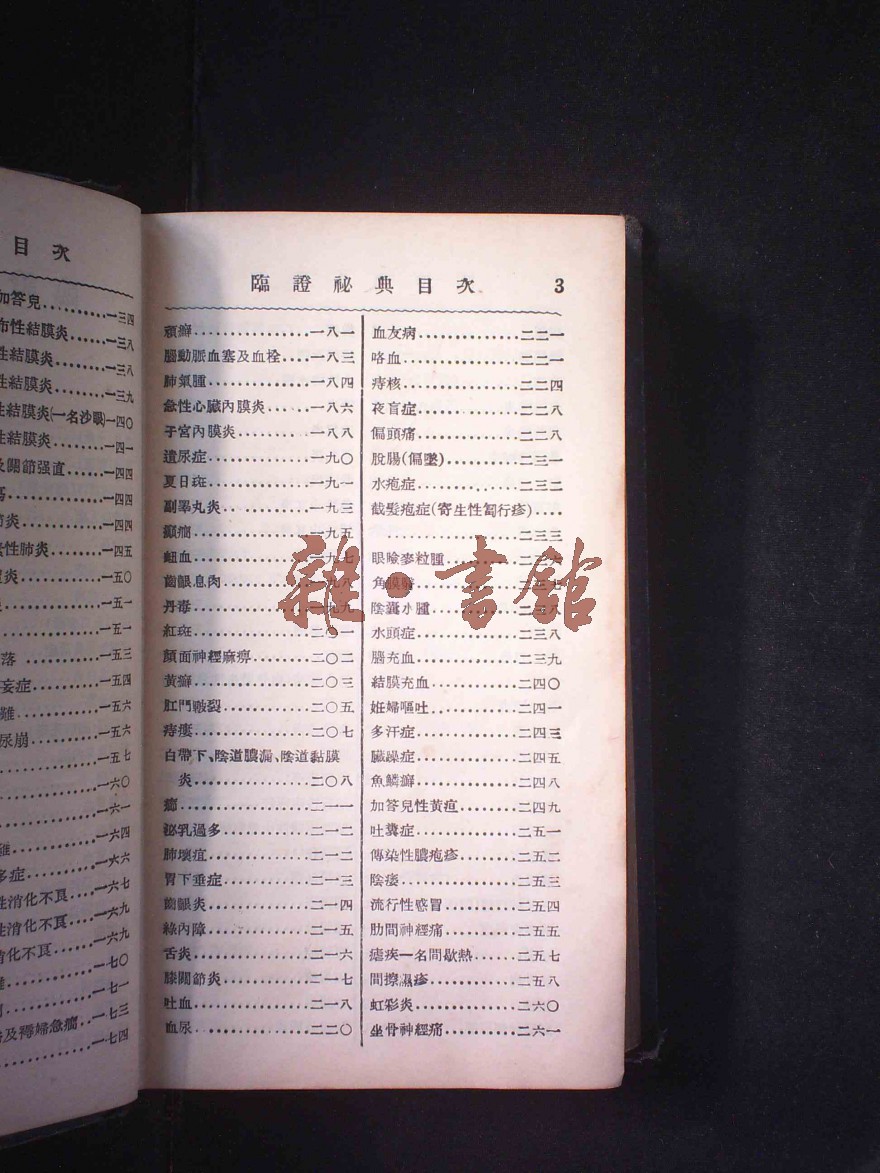 目次
加答兒..........一三四
布性結膜炎......一三八
性結膜炎........一三八
性結膜炎........一三九
性結膜炎(一名沙眼)一四〇
性結膜炎........一四一
及關節强直......一四四
........一四四
節炎........一四四
性肺炎........一四五
炎........一五〇
........一五一
........一五一
落........一五三
妄症........一五四
難........一五六
尿崩........一五六
........一五七
........一六〇
........一六一
難........一六四
多症........一六六
性消化不良....一六七
性消化不良....一六九
消化不良....一六九
........一七〇
........一七一
........一七三
及褥婦急癇..一七四
臨證祕典目次 3
頑癬............一八一
腦動脈血塞及血栓....一八三
肺氣腫..........一八四
急性心臟內膜炎......一八六
子宮內膜炎........一八八
遺尿症..........一九〇
夏日斑..........一九一
副睪丸炎........一九三
癲癇............一九五
衄血............一九七
齒齦息肉........一九八
丹毒............一九九
紅斑............二〇一
顏面神經麻痹........二〇二
黃癬............二〇三
肛門皸裂........二〇五
痔瘻............二〇七
白帶下、陰道膿漏、陰道黏膜
炎............二〇八
癤............二一一
泌乳過多........二一二
肺壞疽..........二一二
胃下垂症........二一三
齒齦炎..........二一四
綠內障..........二一五
舌炎............二一六
膝關節炎........二一七
吐血............二一八
血尿............二二〇
血友病..........二二一
咯血............二二一
痔核............二二四
夜盲症..........二二八
偏頭痛..........二二八
脫腸(偏墜)........二三一
水疱症..........二三二
截髮疱症(寄生性匐行疹)....
............二三三
眼瞼麥粒腫........二三六
角膜翳..........二三七
陰囊水腫........二三八
水頭症..........二三八
腦充血..........二三九
結膜充血........二四〇
妊婦嘔吐........二四一
多汗症..........二四三
臟躁症..........二四五
魚鱗癬..........二四八
加答兒性黃疸........二四九
吐糞症..........二五一
傳染性膿疱疹........二五二
陰痿............二五三
流行性感冒........二五四
肋間神經痛........二五五
瘧疾一名間歇熱......二五七
間擦濕疹........二五八
虹彩炎..........二六〇
坐骨神經痛........二六一
雜·書館